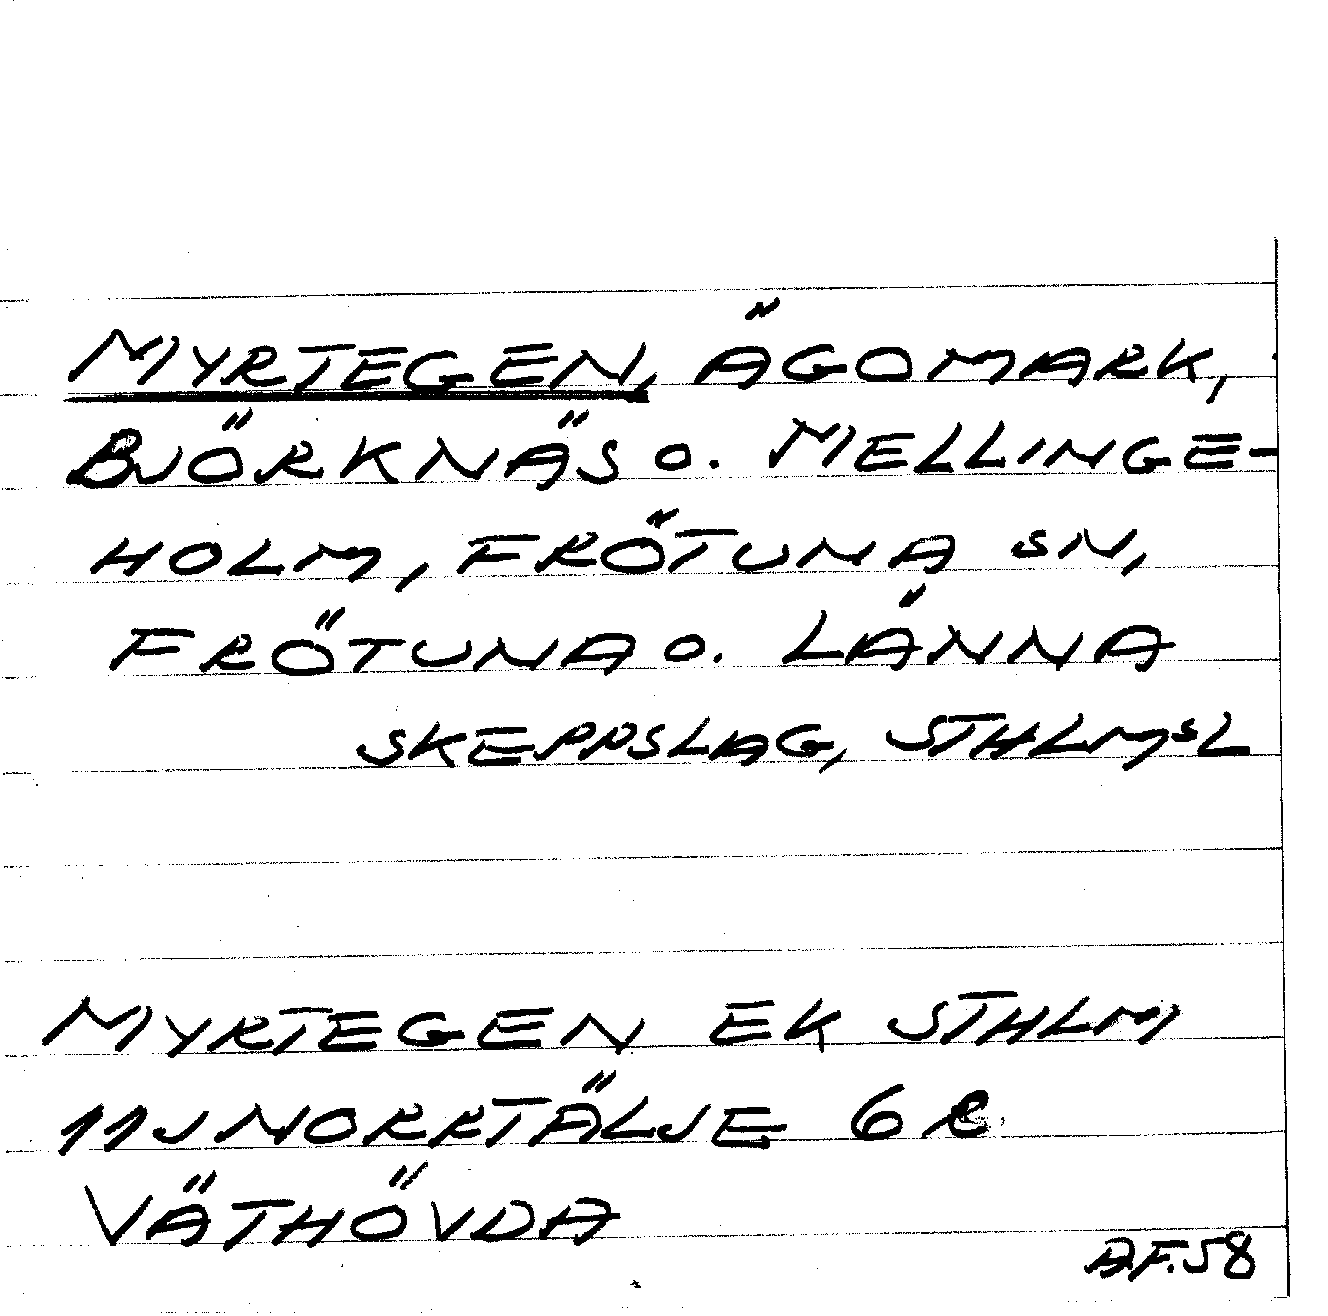 MYRTEGEN, ÄGOMARK,
BJÖRKNÄS o. MELLINGE-
HOLM, FRÖTUNA SN,
FRÖTUNA o. LÄNNA
SKEPPSLAG, STHLMSL
MYRTEGEN EK STHLM
11J NORRTÄLJE 6 e
VÄTHÖVDA
A.F.58